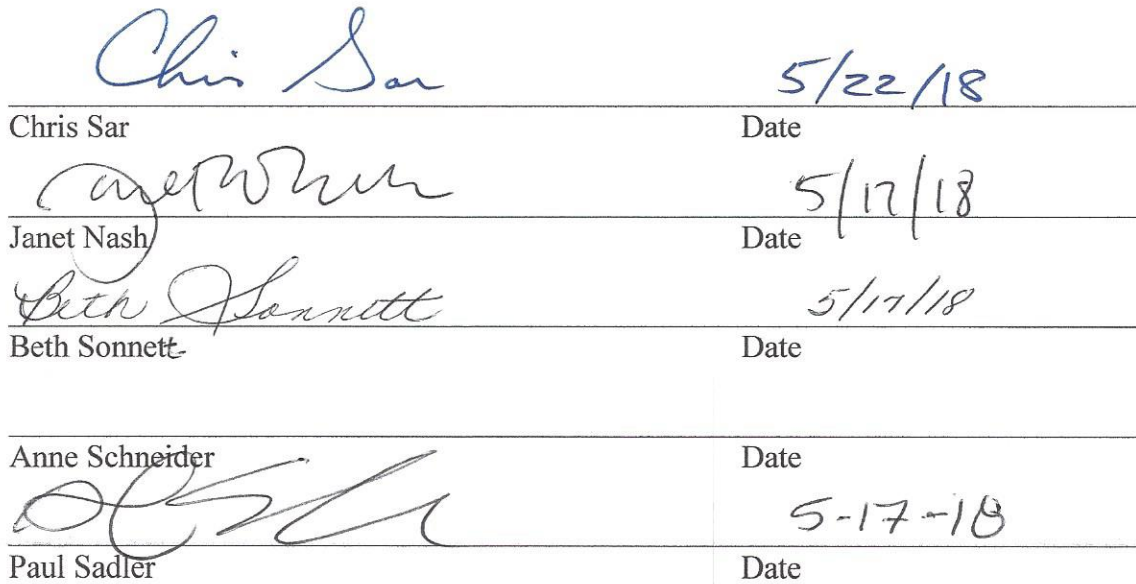 Chris Sar 5/22/18
Chris Sar Date
5/17/18
Janet Nash Date
Beth Sonnett 5/17/18
Beth Sonnett Date
Anne Schneider Date
5-17-18
Paul Sadler Date